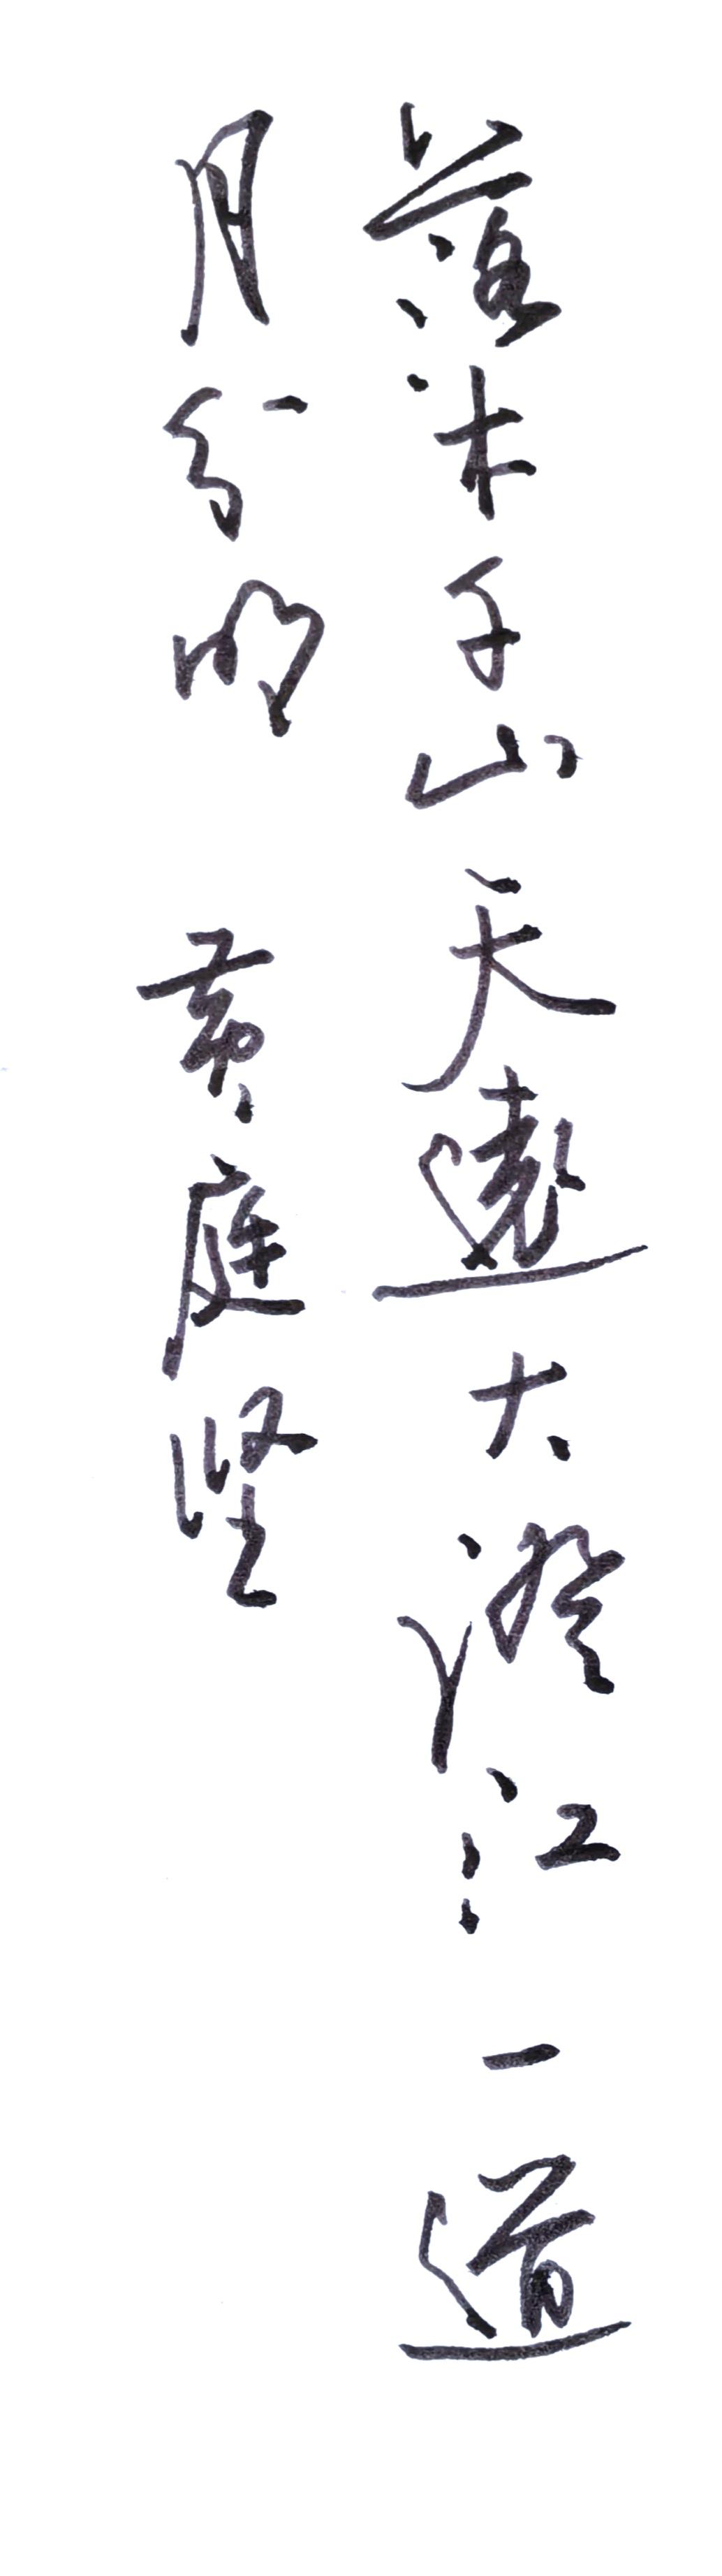 落木千山天遠大澄江一道
月分明 黄庭坚